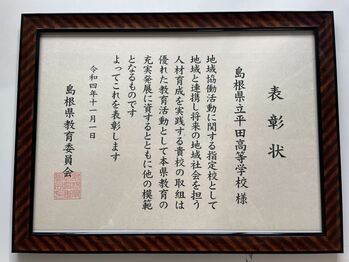 表彰状
島根県立平田高等学校 様
地域協働活動に関する指定校として
地域と連携し将来の地域社会を担う
人材育成を実践する貴校の取組は
優れた教育活動として本県教育の
充実発展に資するとともに他の模範
となるものです
よってこれを表彰します
令和四年十一月一日
島根県教育委員会